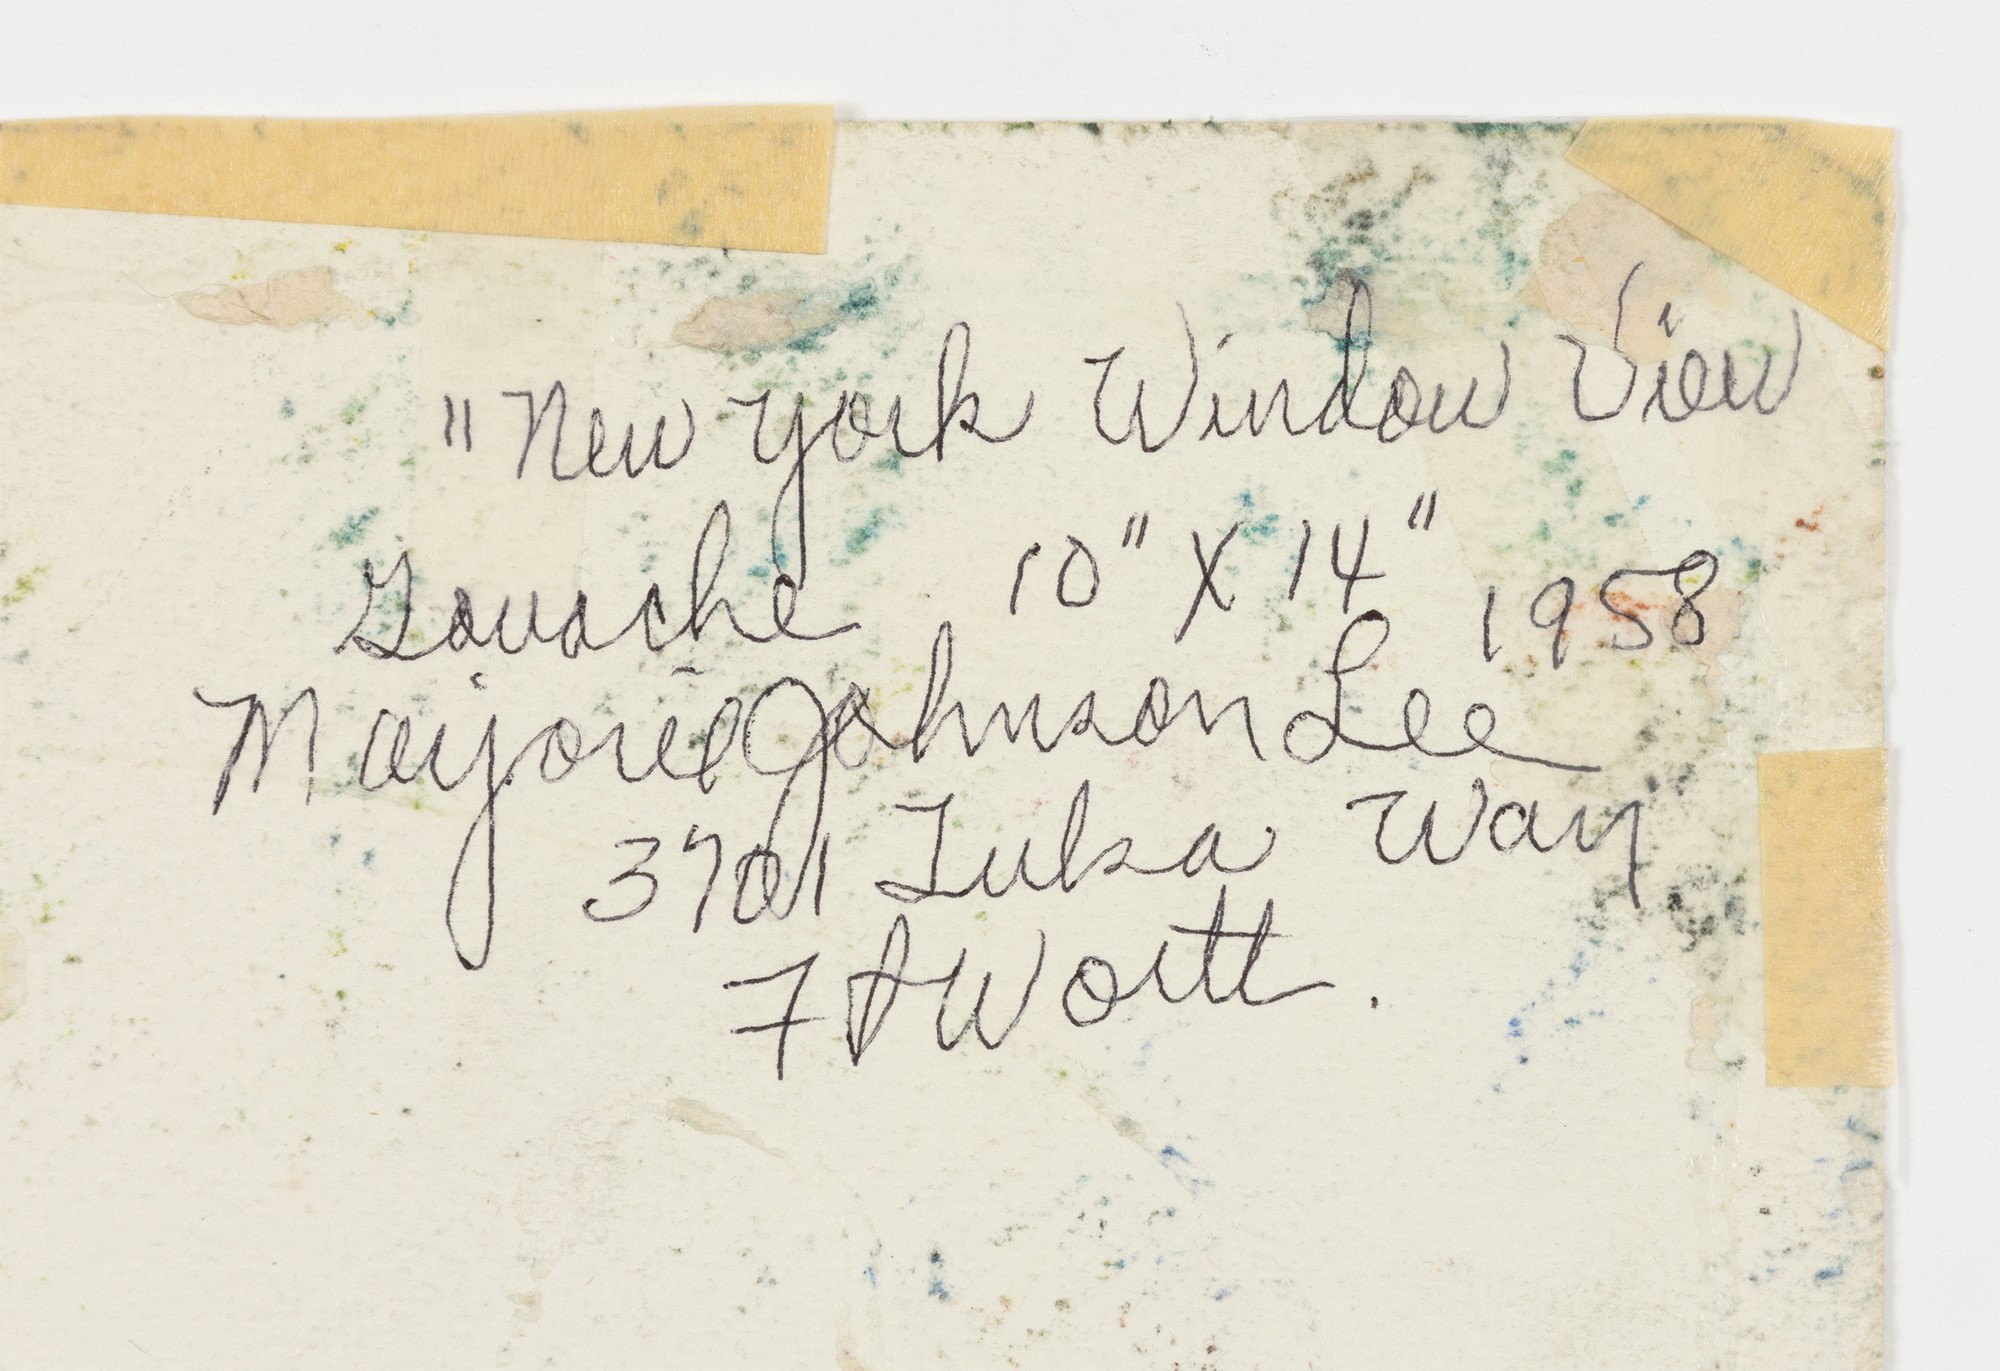 "New York Window View
Gouache 10" X 14" 1958
Marjorie Johnson Lee
3701 Tulsa Way
Ft Worth.